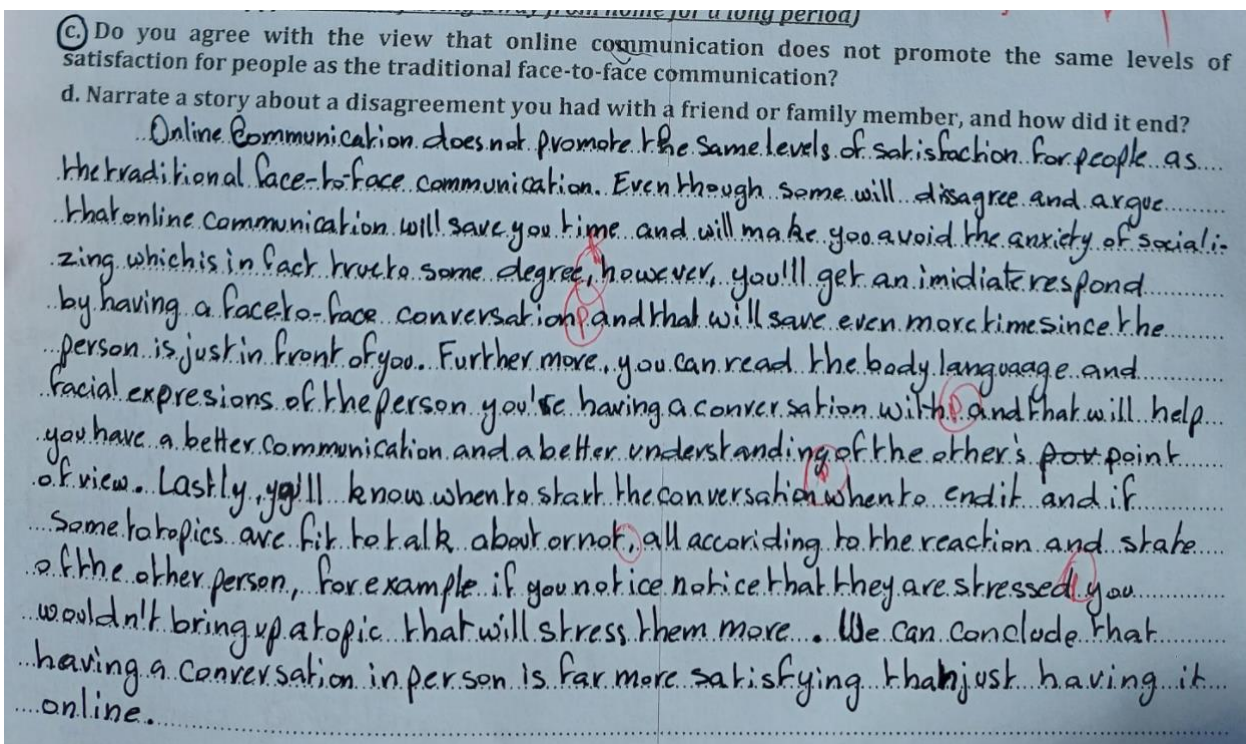 from home for a long period)
c. Do you agree with the view that online communication does not promote the same levels of
satisfaction for people as the traditional face-to-face communication?
d. Narrate a story about a disagreement you had with a friend or family member, and how did it end?
Online Communication does not promote the same levels of satisfaction for people as
the traditional face-to-face communication. Even though some will dissagree and argue
that online communication will save you time and will make you avoid the anxiety of sociali-
zing which is in fact true to some degree, however, you'll get an imidiate respond
by having a face to-face conversation P and that will save even more time since the
person is just in front of you. Further more, you can read the body languaage and
facial expresions of the person you're having a conversation with P and that will help
you have a better communication and a better understanding of the other's pov point
of view. Lastly, you'll know when to start the conversation when to end it and if
some to topics are fit to talk about or not, all accoriding to the reaction and state
of the other person, for example if you notice notice that they are stressed you
wouldn't bring up a topic that will stress them more. We can conclude that
having a conversation in person is far more satisfying than just having it
online.